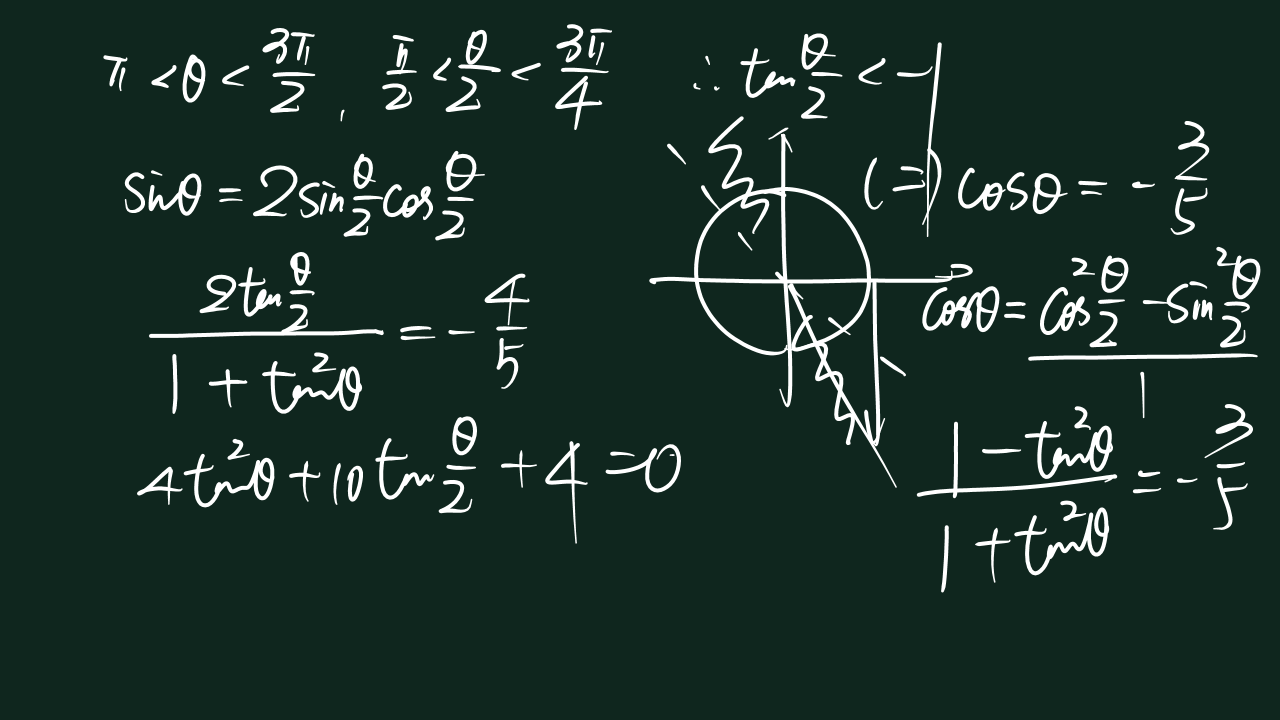 π < θ < 3π/2 , π/2 < θ/2 < 3π/4 ∴ tan θ/2 < -1
sinθ = 2sin θ/2 cos θ/2
2tan θ/2 / 1 + tan²θ = - 4/5
4tan²θ + 10tan θ/2 + 4 = 0
(=) cosθ = - 3/5
cosθ = cos² θ/2 - sin² θ/2 / 1
1 - tan²θ / 1 + tan²θ = - 3/5